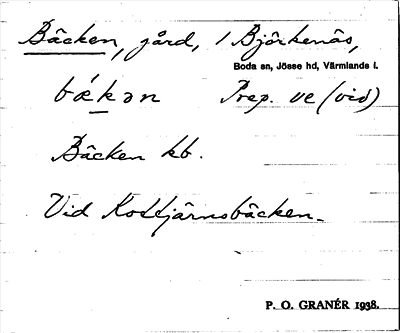 Bäcken, gård, / Björkenäs,
Boda sn, Jösse hd, Värmlands l.
bǽkən Prep. ve (vid)
Bäcken kb.
Vid Kostjärnsbäcken.
P. O. GRANÉR 1938.